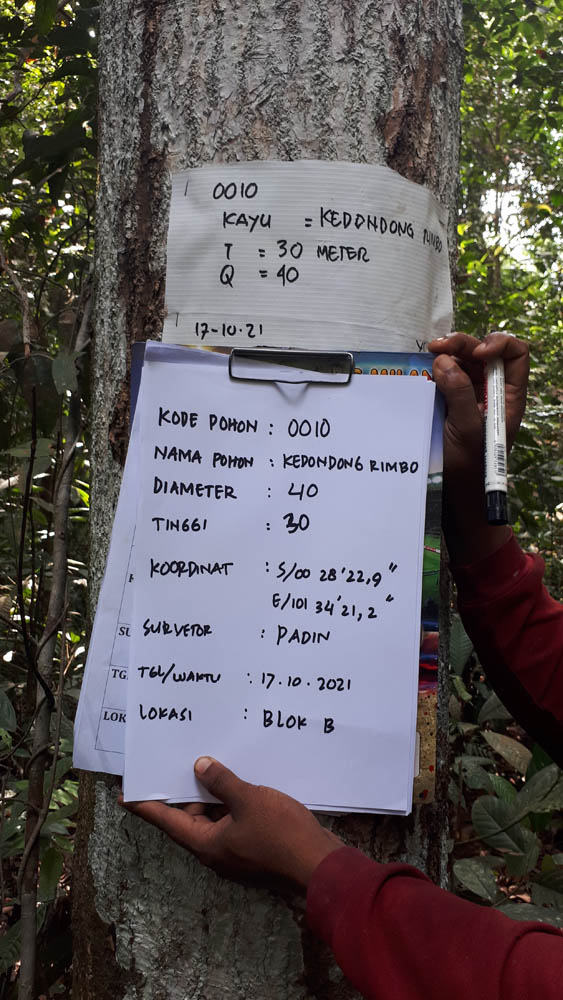 0010
KAYU = KEDONDONG RIMBO
T = 30 METER
Q = 40
17-10.21
KODE POHON : 0010
NAMA POHON : KEDONDONG RIMBO
DIAMETER : 40
TINGGI : 30
KOORDINAT : S/00 28'22,9"
E/101 34'21,2"
SURVEYOR : PADIN
TGL/WAKTU : 17.10.2021
LOKASI : BLOK B
SU
TG
LOK